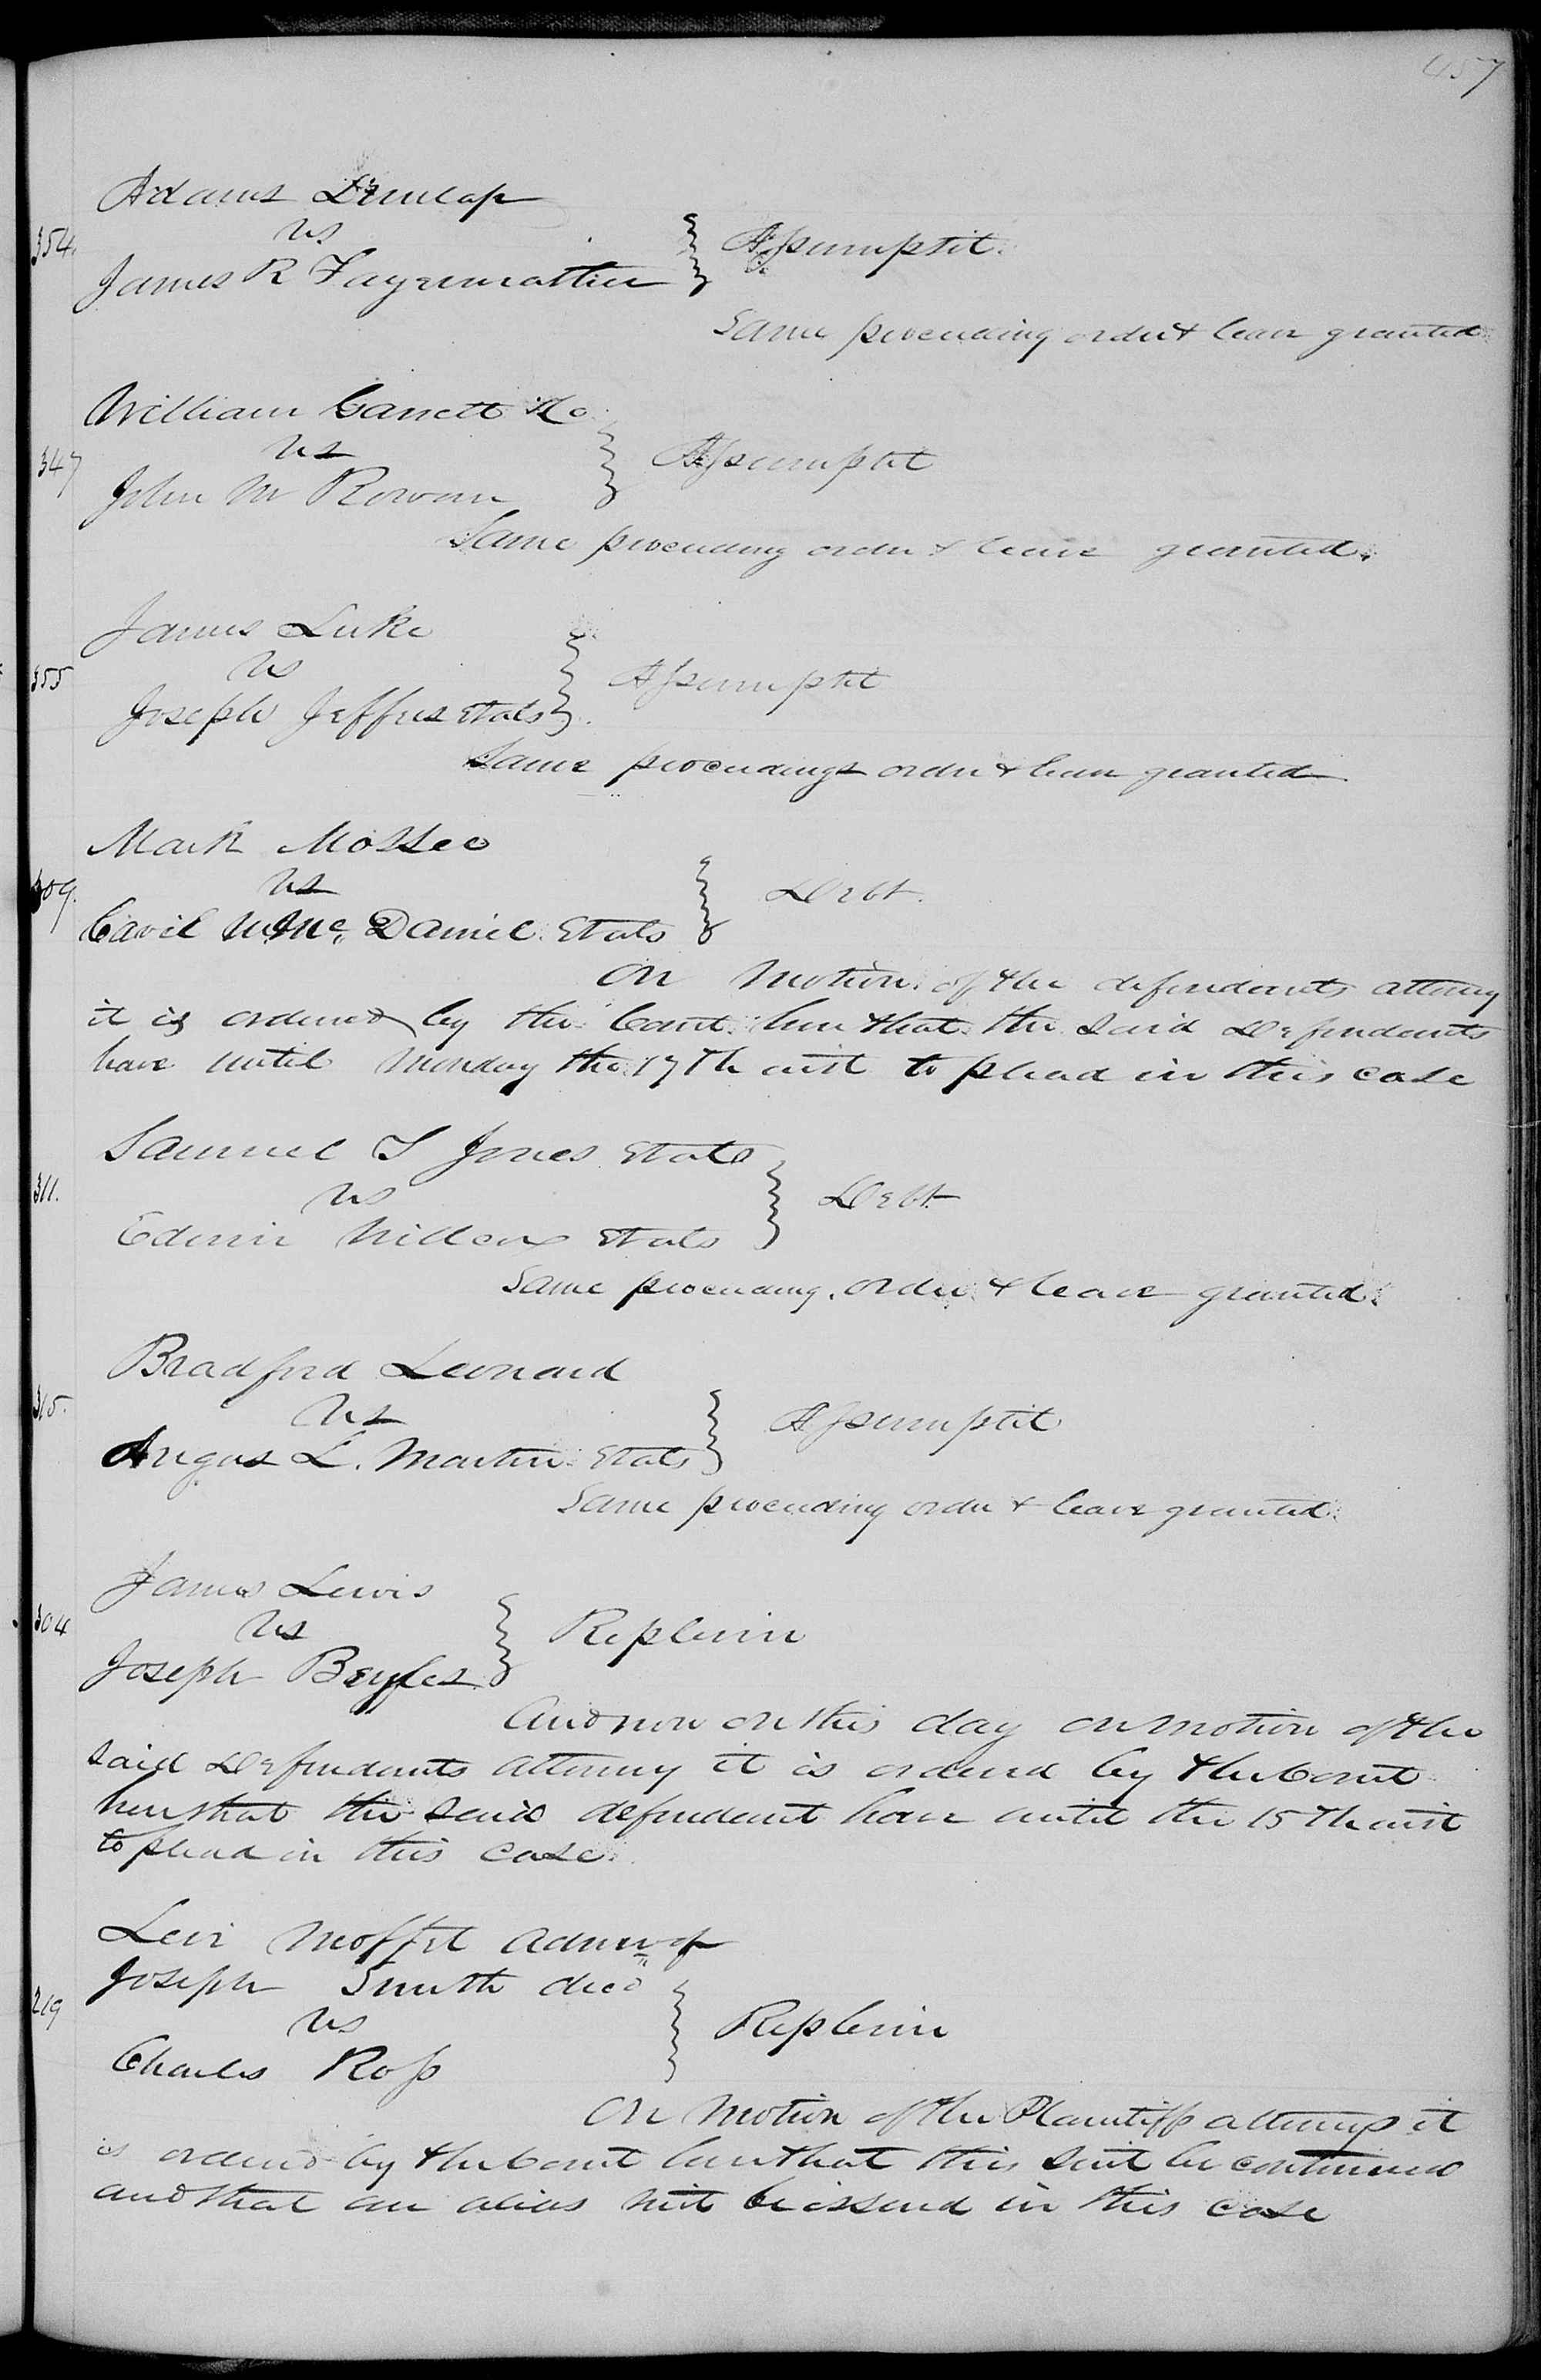 457
Adams Dunlap
354. vs
James R Fayerweather } Assumpsit.
Same proceeding order & leave granted
William Garrett & Co
347 vs } Assumpsit
John M Rowan
Same proceeding order & leave granted.
James Luke
355 vs } Assumpsit
Joseph Jeffries etals
Same proceedings order & leave granted
Mark
309. vs } Debt.
Mc Daniel etals
On motion of the defendants attorney
it is ordered by the Court here that the said Defendants
have until Monday the 17th inst to plead in this case
Samuel T Jones etals
311. vs } Debt
Edwin Willcox etals
Same proceeding order & leave granted.
Bradford Leonard
315. vs } Assumpsit
Angus L. Martin etals
Same proceeding order & leave granted.
James Lewis
304 vs } Replevin
Joseph
And now on this day on motion of the
said Defendants attorney it is ordered by the Court
here that the said defendant have until the 15th inst
to plead in this case.
Levi Moffet Admr of
Joseph Smith decd
219 vs } Replevin
Charles Ross
On motion of the Plaintiffs attorneys it
is ordered by the Court here that this suit be continued
and that an alias writ be issued in this case